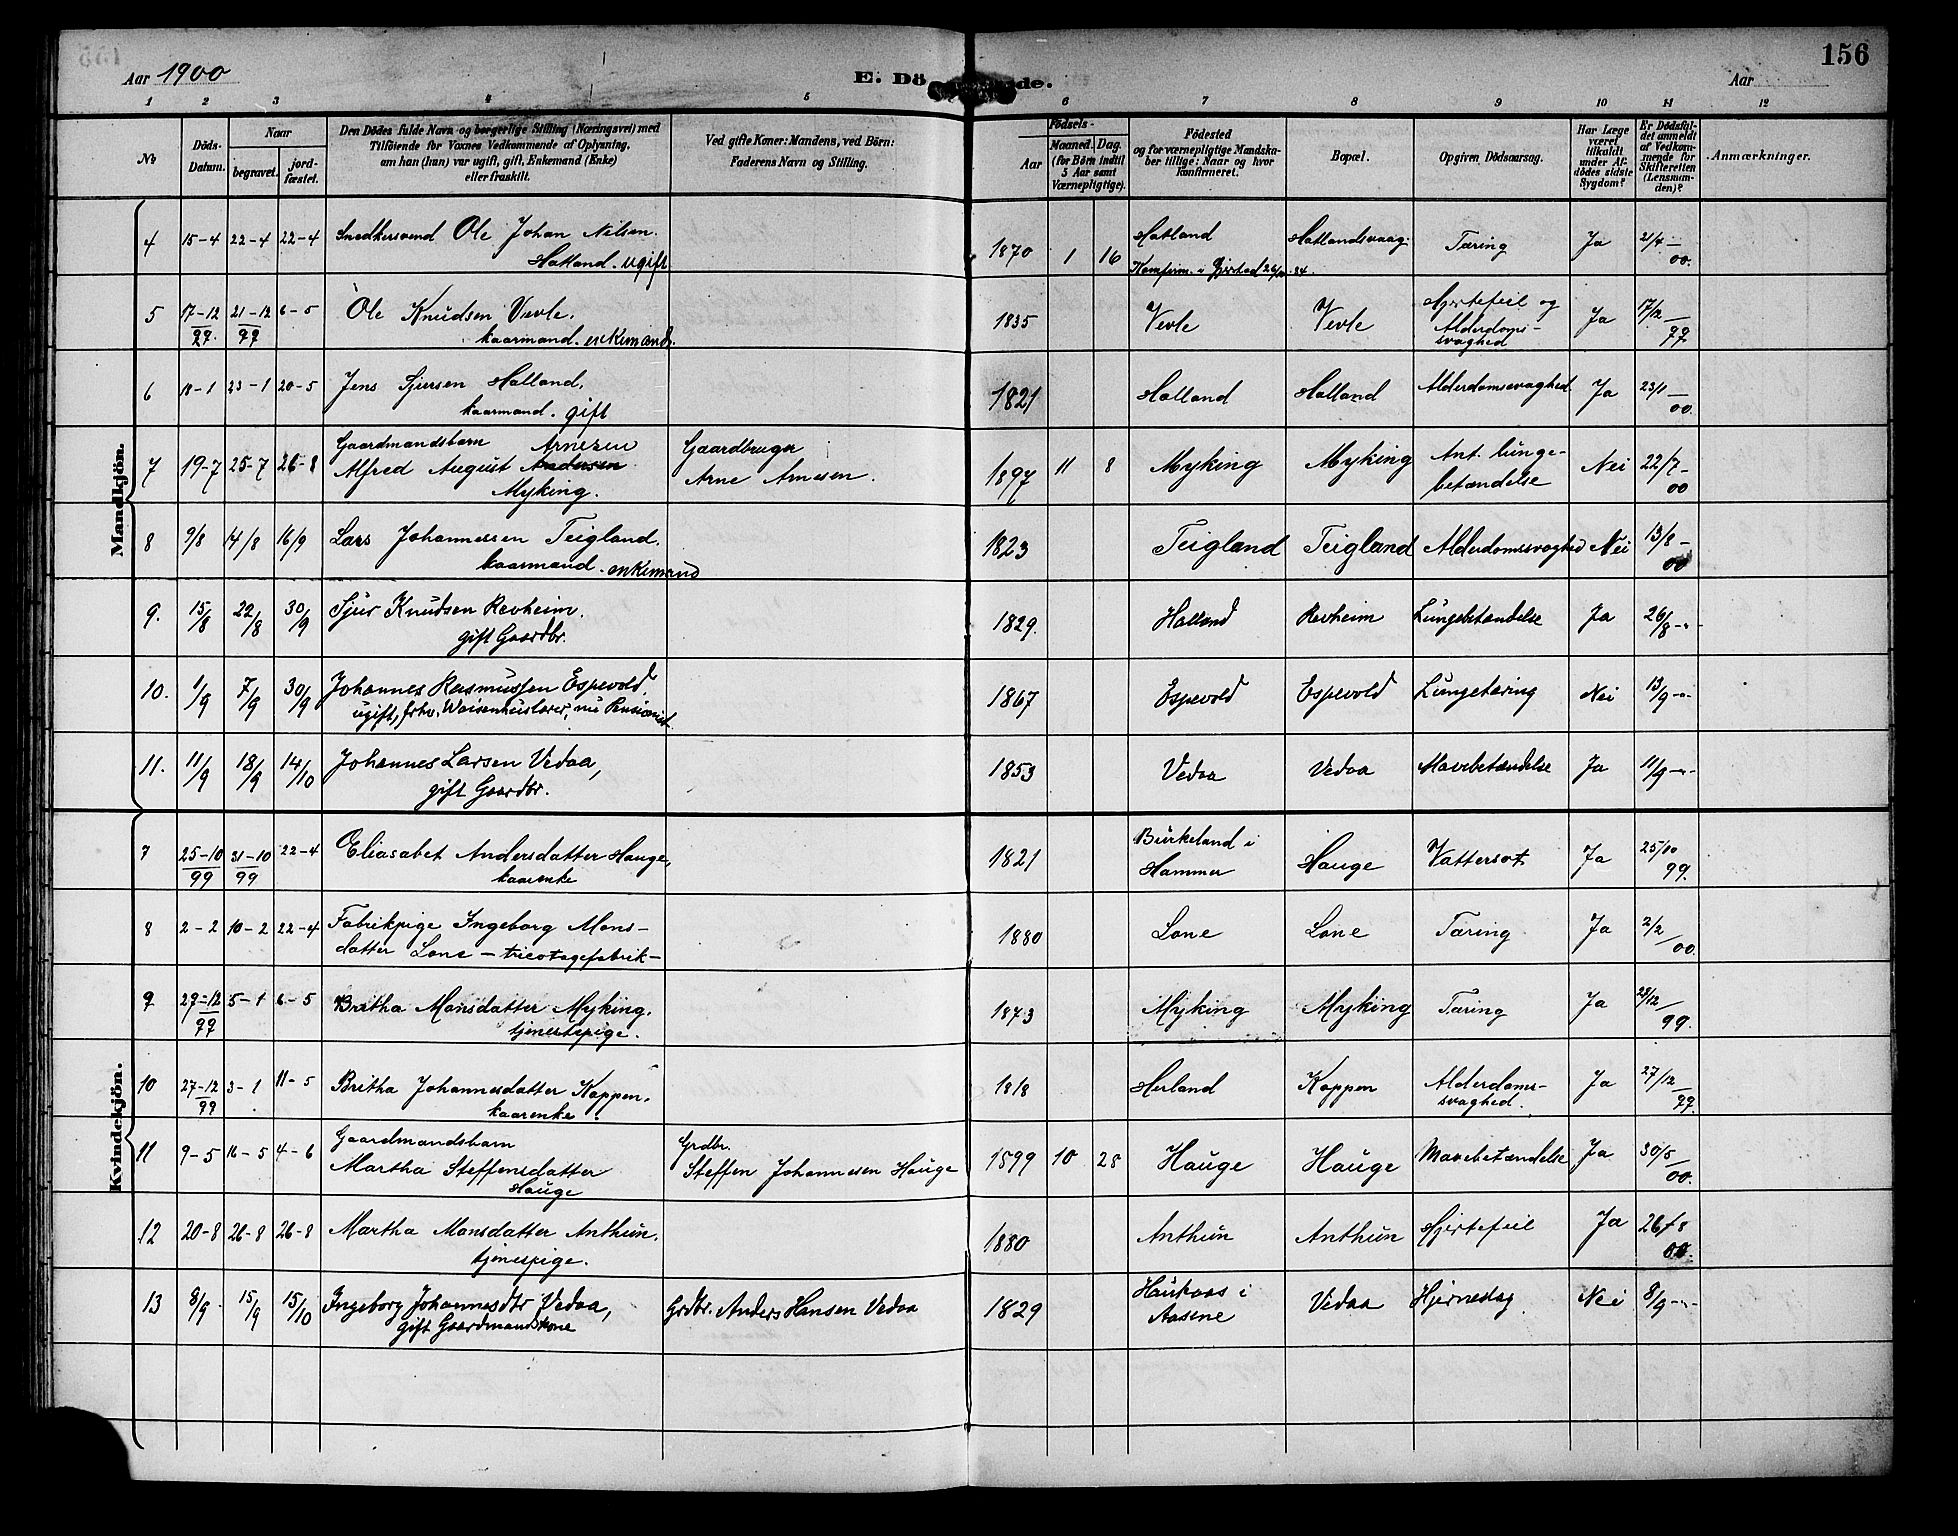 Aar 1900
E. Dö
de.
Aar
156
1 2 3 4 5 6 7 8 9 10 11 12
No
Döds-Datum.
Naar
begravet.
jordfæstet.
Den Dödes fulde Navn og borgerlige Stilling (Næringsvei) med
Tilföiende for Voxnes Vedkommende af Oplysning,
om han (hun) var ugift, gift, Enkemand (Enke)
eller fraskilt.
Ved gifte Koner: Mandens, ved Börn:
Faderens Navn og Stilling.
Födsels-
Aar
Maaned. Dag.
(for Börn indtil
5 Aar samt
Værnepligtige).
Födested
og for værnepligtige Mandskaber tillige: Naar og hvor
konfirmeret.
Bopæl.
Opgiven Dödsaarsag.
Har Læge
været
tilkaldt
under Afdödes sidste
Sygdom?
Er Dödsfaldet anmeldt
af Vedkommende for
Skifteretten
(Lensmanden)?
Anmærkninger.
Mandkjön.
4 15-4 22-4 22-4 Snedkersvend Ole Johan Nilsen Hatland. ugift 1870 1 16 Hatland Konfirm. i Gjerstad 26/10 84. Hatlandsvaag. Tæring Ja 21/4-00.
5 17-12/99. 21-12/99 6-5 Ole Knudsen Vevle. kaarmand. enkemand. 1835 Vevle Vevle Hjertefeil og Alderdoms-svaghed Ja 17/12-99
6 18-1 23-1 20-5 Jens Sjursen Hatland. kaarmand. gift 1821 Hatland Hatland Alderdomssvaghed. Ja 23/1-00.
7 19-7 25-7 26-8 Gaardmandsbarn Alfred August Andersen Arnesen Myking. Gaardbruger Arne Arnesen. 1897 11 8 Myking Myking Ant. lunge-betændelse Nei 22/7-00
8 9/8 14/8 16/9 Lars Johannessen Teigland. kaarmand. enkemand 1823 Teigland Teigland Alderdomssvaghed Nei 13/8-00
9. 15/8 22/8 30/9 Sjur Knudsen Revheim. gift Gaardbr. 1829. Hatland Revheim Lungebetændelse Ja 26/8-"-
10. 1/9 7/9 30/9 Johannes Rasmussen Espevold. ugift, frhv. Waisenhuslærer, nu Pensionist. 1867 Espevold Espevold Lungetæring Nei 13/9-"-
11. 11/9 18/9 14/10 Johannes Larsen Vedaa, gift Gaardbr. 1853 Vedaa Vedaa Mavebetændelse Ja 11/9-"-
Kvindekjön.
7 25-10/99 31-10/99 22-4 Eliasabet Andersdatter Hauge, kaarenke 1821 Burkeland i Hammer Hauge Vattersot Ja 25/10 99.
8 2-2 10-2 22-4 Fabrikpige Ingeborg Mons-datter Lone - tricotagefabrik- 1880 Lone Lone Tæring Ja 2/2/00.
9 29-12/99 5-1 6-5 Britha Monsdatter Myking. tjenestepige. 1873 Myking Myking Tæring Ja 29/12/99.
10 27-12/99 3-1 11-5 Britha Johannesdatter Koppen. kaarenke. 1818 Herland Koppen Alderdoms-svaghed. Ja 27/12-99.
11 9-5 16-5 4-6 Gaardmandsbarn Martha Steffensdatter Hauge Grdbr. Steffen Johannesen Hauge 1899 10 28 Hauge Hauge Mavebetændelse Ja 30/5/00.
12 20-8 26-8 26-8 Martha Monsdatter Anthun. tjenespige. 1880 Anthun Anthun Hjertefeil Ja 26/8 00.
13 8/9 15/9 15/10 Ingeborg Johannesdtr Vedaa, gift Gaardmandskone Grdbr. Anders Hansen Vedaa 1829 Haukaas i Aasene Vedaa Hjerneslag Nei 8/9-"-